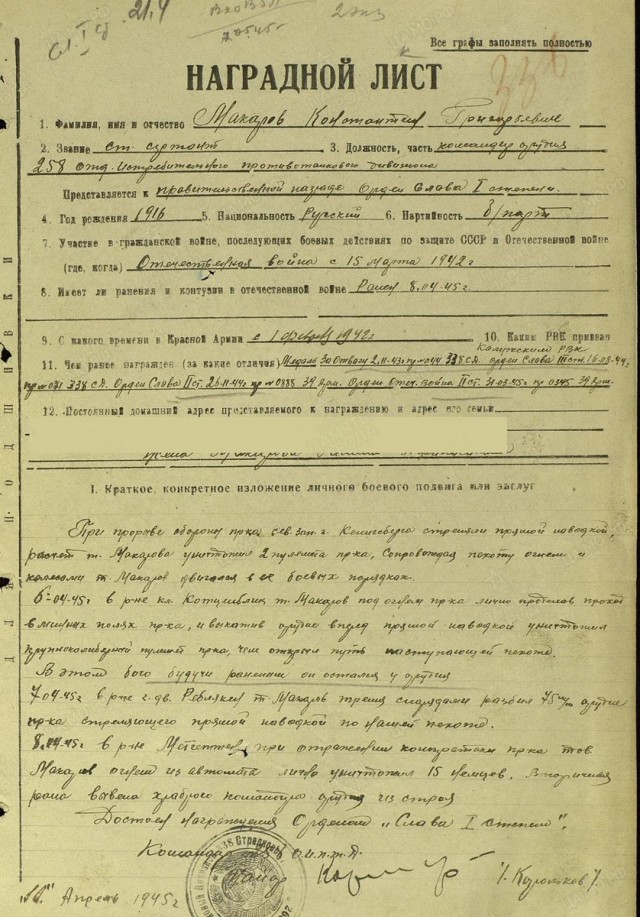 21.4
Все графы заполнять полностью
НАГРАДНОЙ ЛИСТ
1. Фамилия, имя и отчество Макаров Константин Григорьевич
2. Звание ст. сержант 3. Должность, часть командир орудия
258 отд. истребительного противотанкового дивизиона
Представляется к правительственной награде Орден Слава I степени.
4. Год рождения 1916 5. Национальность Русский 6. Партийность б/парт
7. Участие в гражданской войне, последующих боевых действиях по защите СССР в Отечественной войне
(где, когда) Отечественная война с 15 марта 1942 г
8. Имеет ли ранения и контузии в отечественной войне Ранен 8.04.45г.
9. С какого времени в Красной Армии с 1942г 10. Каким РВК призван
Калужским РВК
11. Чем ранее награжден (за какие отличия) Медаль За Отвагу 2.11.43г пр №044 338 с.д. Орден Слава III ст. 16.03.44г.
пр №071 338 с.д. Орден Слава II ст. 26.11.44г пр №0888 39 Арм. Орден Отеч. война II ст. 31.03.45г пр 0345 39 Арм.
12. Постоянный домашний адрес представляемого к награждению и адрес его семьи
I. Краткое, конкретное изложение личного боевого подвига или заслуг
При прорыве обороны пр-ка сев. зап. г. Кенигсберга стреляя прямой наводкой,
расчет т. Макарова уничтожил 2 пулемета пр-ка, сопровождая пехоту огнем и
колесами т. Макаров двигался в ее боевых порядках.
6-04-45г в р-не кл. т. Макаров под огнем пр-ка лично проделав проход
в минных полях пр-ка, и выкатив орудие вперед прямой наводкой уничтожил
крупнокалиберный пулемет пр-ка, чем открыл путь наступающей пехоте.
В этом бою будучи раненым он остался у орудия
7.04.45г в р-не г. дв. т. Макаров тремя снарядами разбил 75 м/м орудие
пр-ка стреляющего прямой наводкой по нашей пехоте.
8.04.45г в р-не при отражении контратаки пр-ка тов.
Макаров огнем из автомата лично уничтожил 15 немцев. Вторичная
рана вывела храброго командира орудия из строя
Достоин награждения Орденом „Слава I степени".
Командир О.И.П.Т.Д.
Майор
Апрель 1945 г
ДЛЯ ПОДШИВКИ